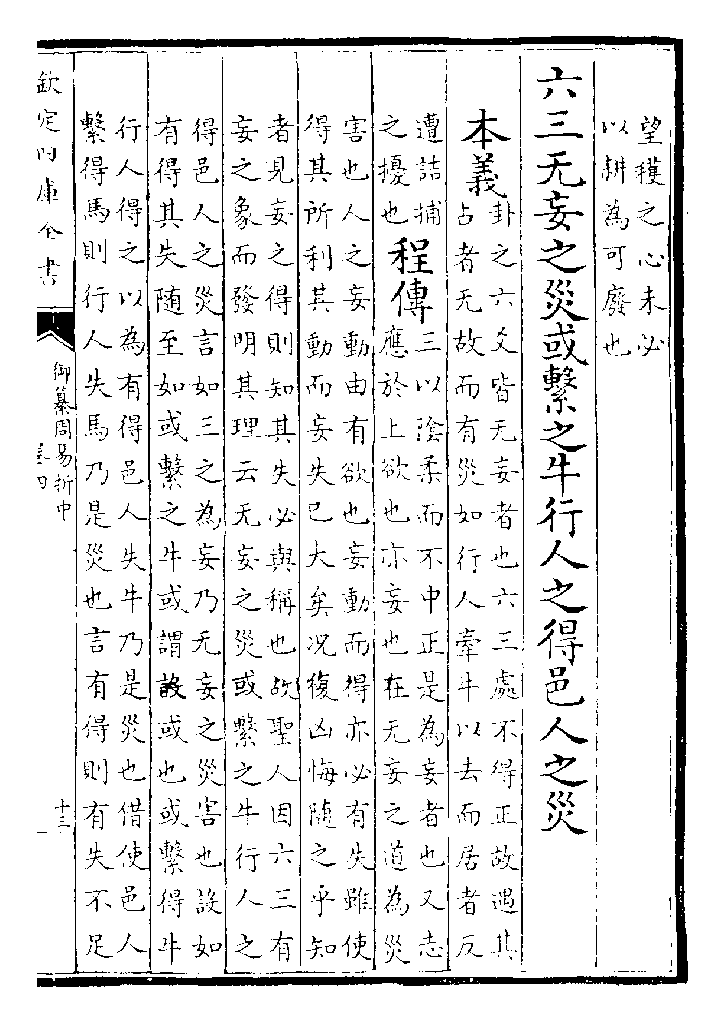 望穫之心未必
以耕為可廢也
六三无妄之災或繫之牛行人之得邑人之災
本義
卦之六爻皆无妄者也六三處不得正故遇其
占者无故而有災如行人牽牛以去而居者反
遭詰捕
之擾也
程傳
三以陰柔而不中正是為妄者也又志
應於上欲也亦妄也在无妄之道為災
害也人之妄動由有欲也妄動而得亦必有失雖使
得其所利其動而妄失已大矣况復凶悔隨之乎知
者見妄之得則知其失必與稱也故聖人因六三有
妄之象而發明其理云无妄之災或繫之牛行人之
得邑人之災言如三之為妄乃无妄之災害也設如
有得其失隨至如或繫之牛或謂設或也或繫得牛
行人得之以為有得邑人失牛乃是災也借使邑人
繫得馬則行人失馬乃是災也言有得則有失不足
欽定四庫全書
御纂周易折中
卷四
十三